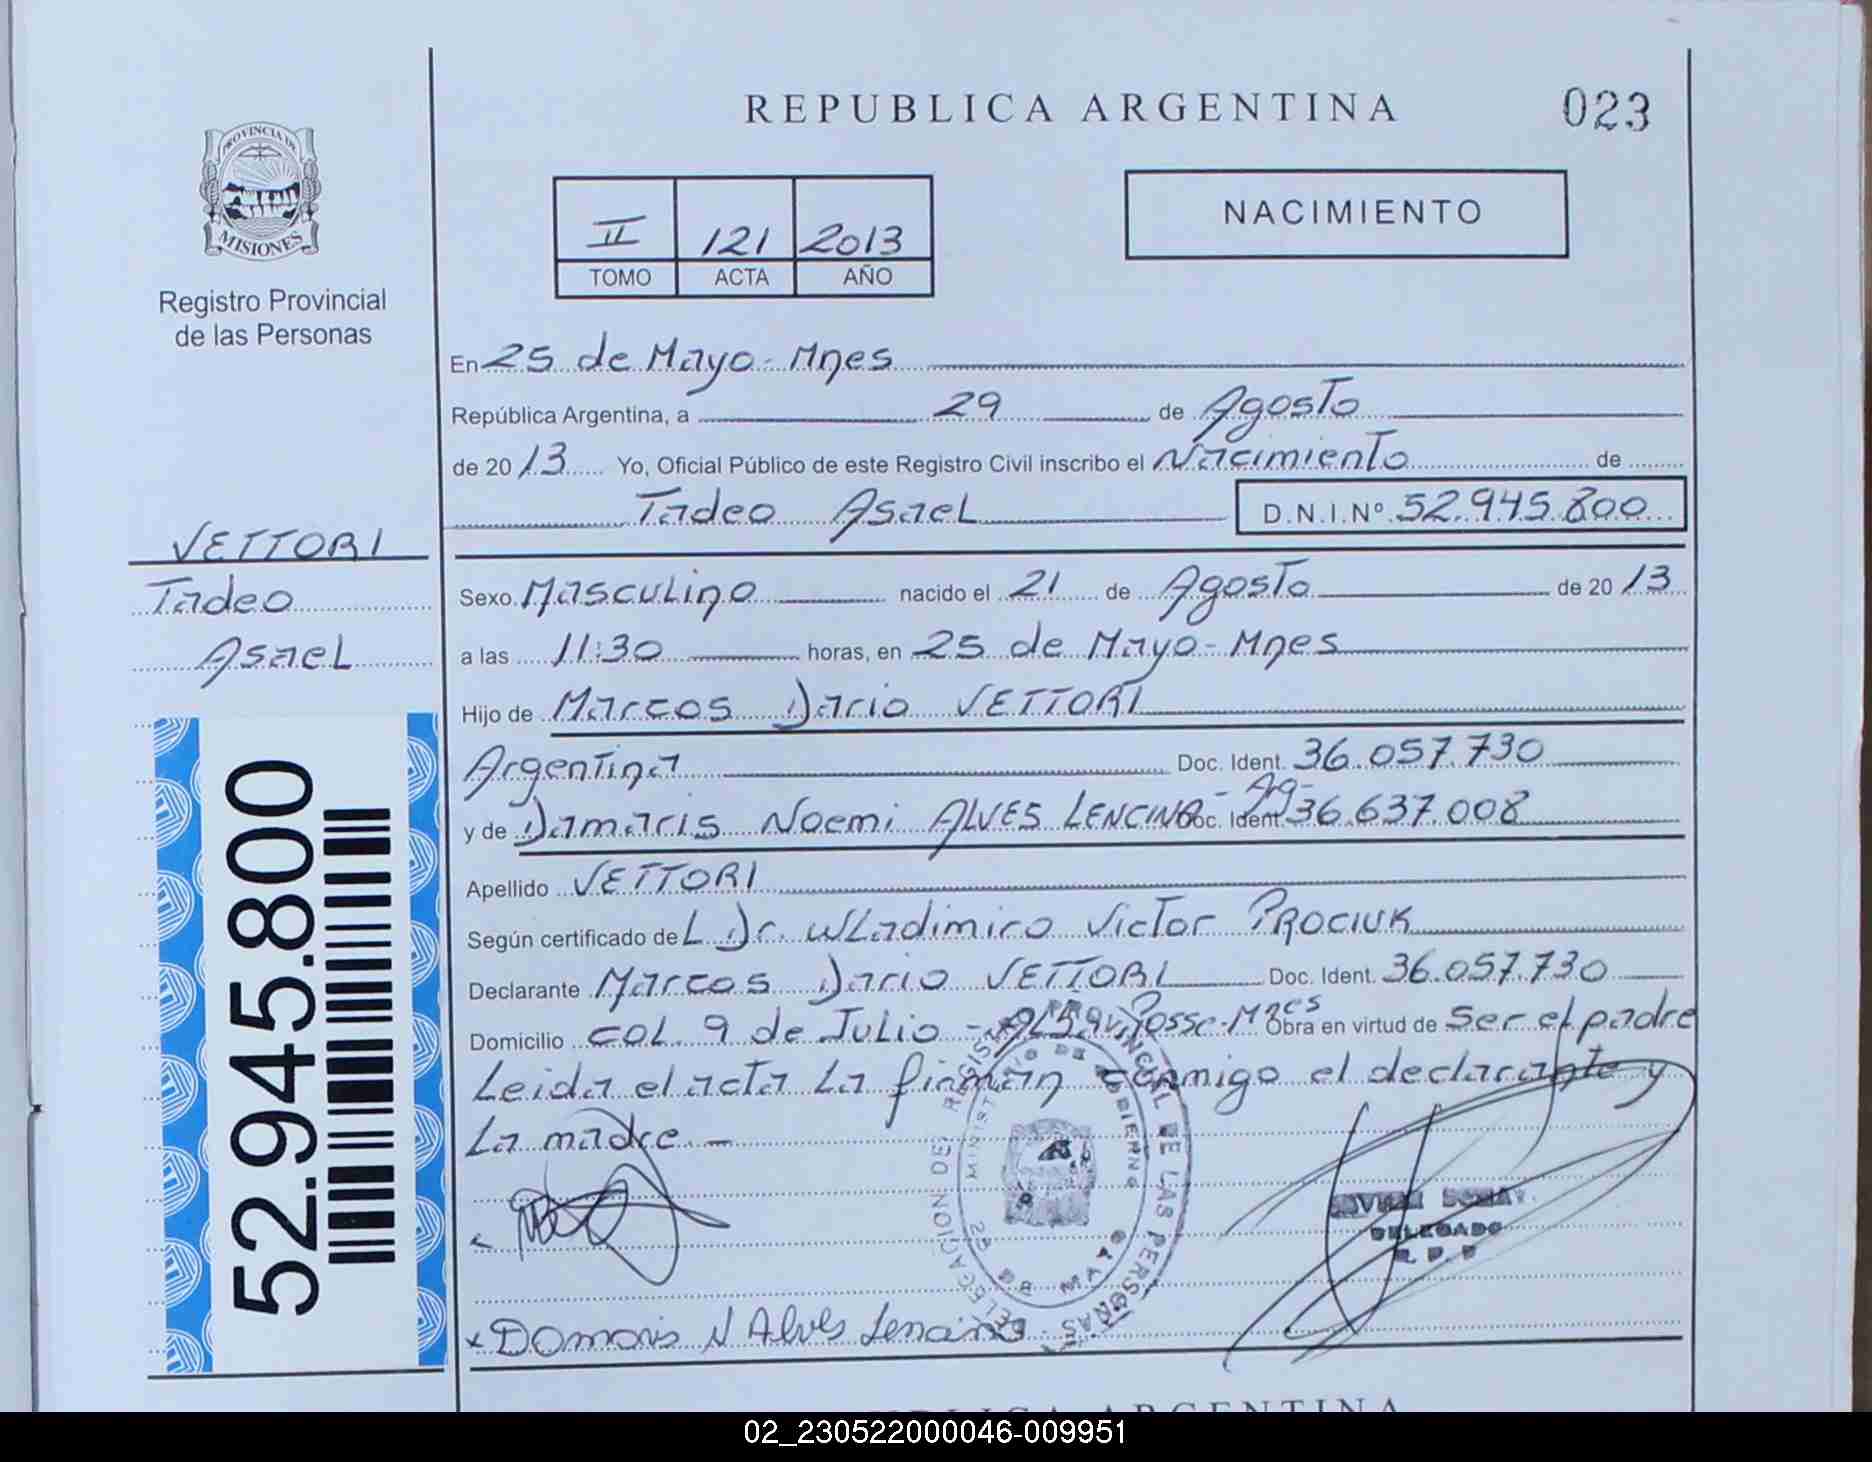 REPUBLICA ARGENTINA
023
PROVINCIA DE
MISIONES
Registro Provincial
de las Personas
II 121 2013
TOMO ACTA AÑO
NACIMIENTO
En 25 de Mayo - Mnes
República Argentina, a 29 de Agosto
de 2013 Yo, Oficial Público de este Registro Civil inscribo el Nacimiento de
Tadeo Asael D.N.I.Nº 52.945.800
VETTORI
Tadeo
Asael
52.945.800
Sexo Masculino nacido el 21 de Agosto de 2013
a las 11:30 horas, en 25 de Mayo - Mnes
Hijo de Marcos Dario VETTORI
Argentina Doc. Ident. 36.057.730
y de Damaris Noemi ALVES LENCINA - Arg - Doc. Ident. 36.637.008
Apellido VETTORI
Según certificado del Dr. Wladimiro Victor PROCIUK
Declarante Marcos Dario VETTORI Doc. Ident. 36.057.730
Domicilio COL. 9 de Julio - Posse - Mnes Obra en virtud de Ser el padre
Leida el acta La firman conmigo el declarante y
La madre. -
DELEGACION DEL REGISTRO PROVINCIAL DE LAS PERSONAS
MINISTERIO DE GOBIERNO
25 DE MAYO
DELEGADO
R.P.P
x Damaris N Alves Lencina
REPUBLICA ARGENTINA
02_230522000046-009951